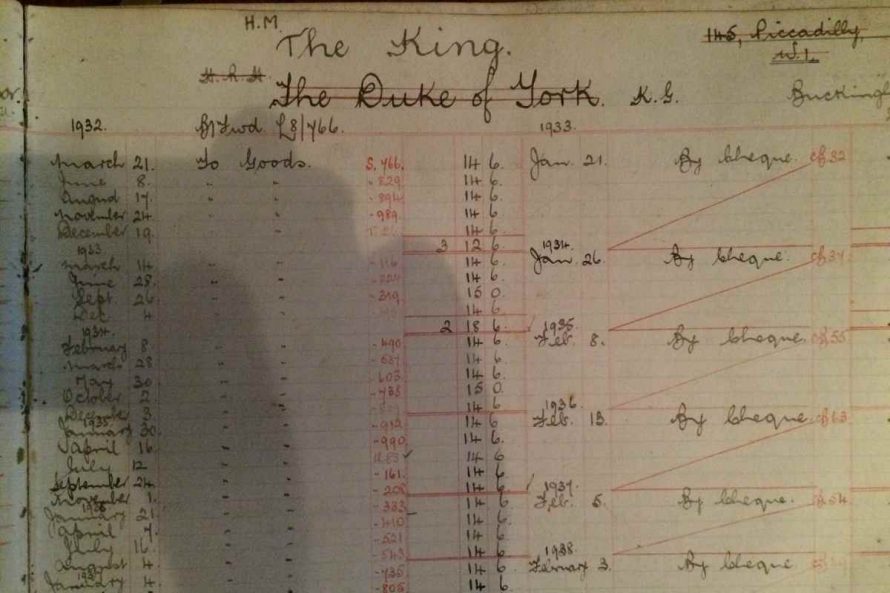 H.M.
The King.
145, Piccadilly,
W.1.
H.R.H.
The Duke of York. K.G.
1932. £8/766. 1933.
March 21. To Goods. S. 766. 14 6. Jan. 21. By Cheque.
June 8. " " 829 14 6.
August 17. " " 894 14 6.
November 24. " " 989 14 6.
December 19. " " 14 6.
1933 3 12 6. 1934.
March 14 " " 116 14 6. Jan. 26. By Cheque.
June 28. " " 14 6.
Sept. 26 " " 319 15 0.
Dec. 4 " " 14 6.
1934. 2 18 6. 1935
February 8. " " 490 14 6. Feb. 8. By Cheque.
March 28 " " 14 6.
May 30 " " 603 14 6.
October 2. " " 15 0.
December 3. " " 14 6. 1936
1935
January 30. " " 912 14 6. Feb. 13. By Cheque.
April 16 " " 990 14 6.
July 12 " " 14 6.
September 24. " " 161 14 6.
November 1. " " 14 6. 1937
1936
January 21 " " 333 14 6. Feb. 5. By Cheque.
April 7. " " 410 14 6.
July 16. " " 521 14 6.
August 4 " " 543 14 6. 1938
1937
January 4. " " 735 14 6. February 3. By Cheque
805 14 6.